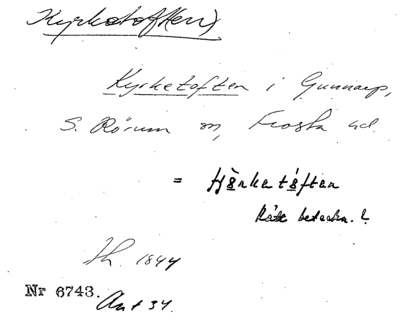 Kyrketoften)
Kyrketoften i Gunnarp,
S. Rörum sn, Frosta hd.
= Hönketóften
Rätt beteckn.?
Th. 1844
Nr 6743. Ant 34.